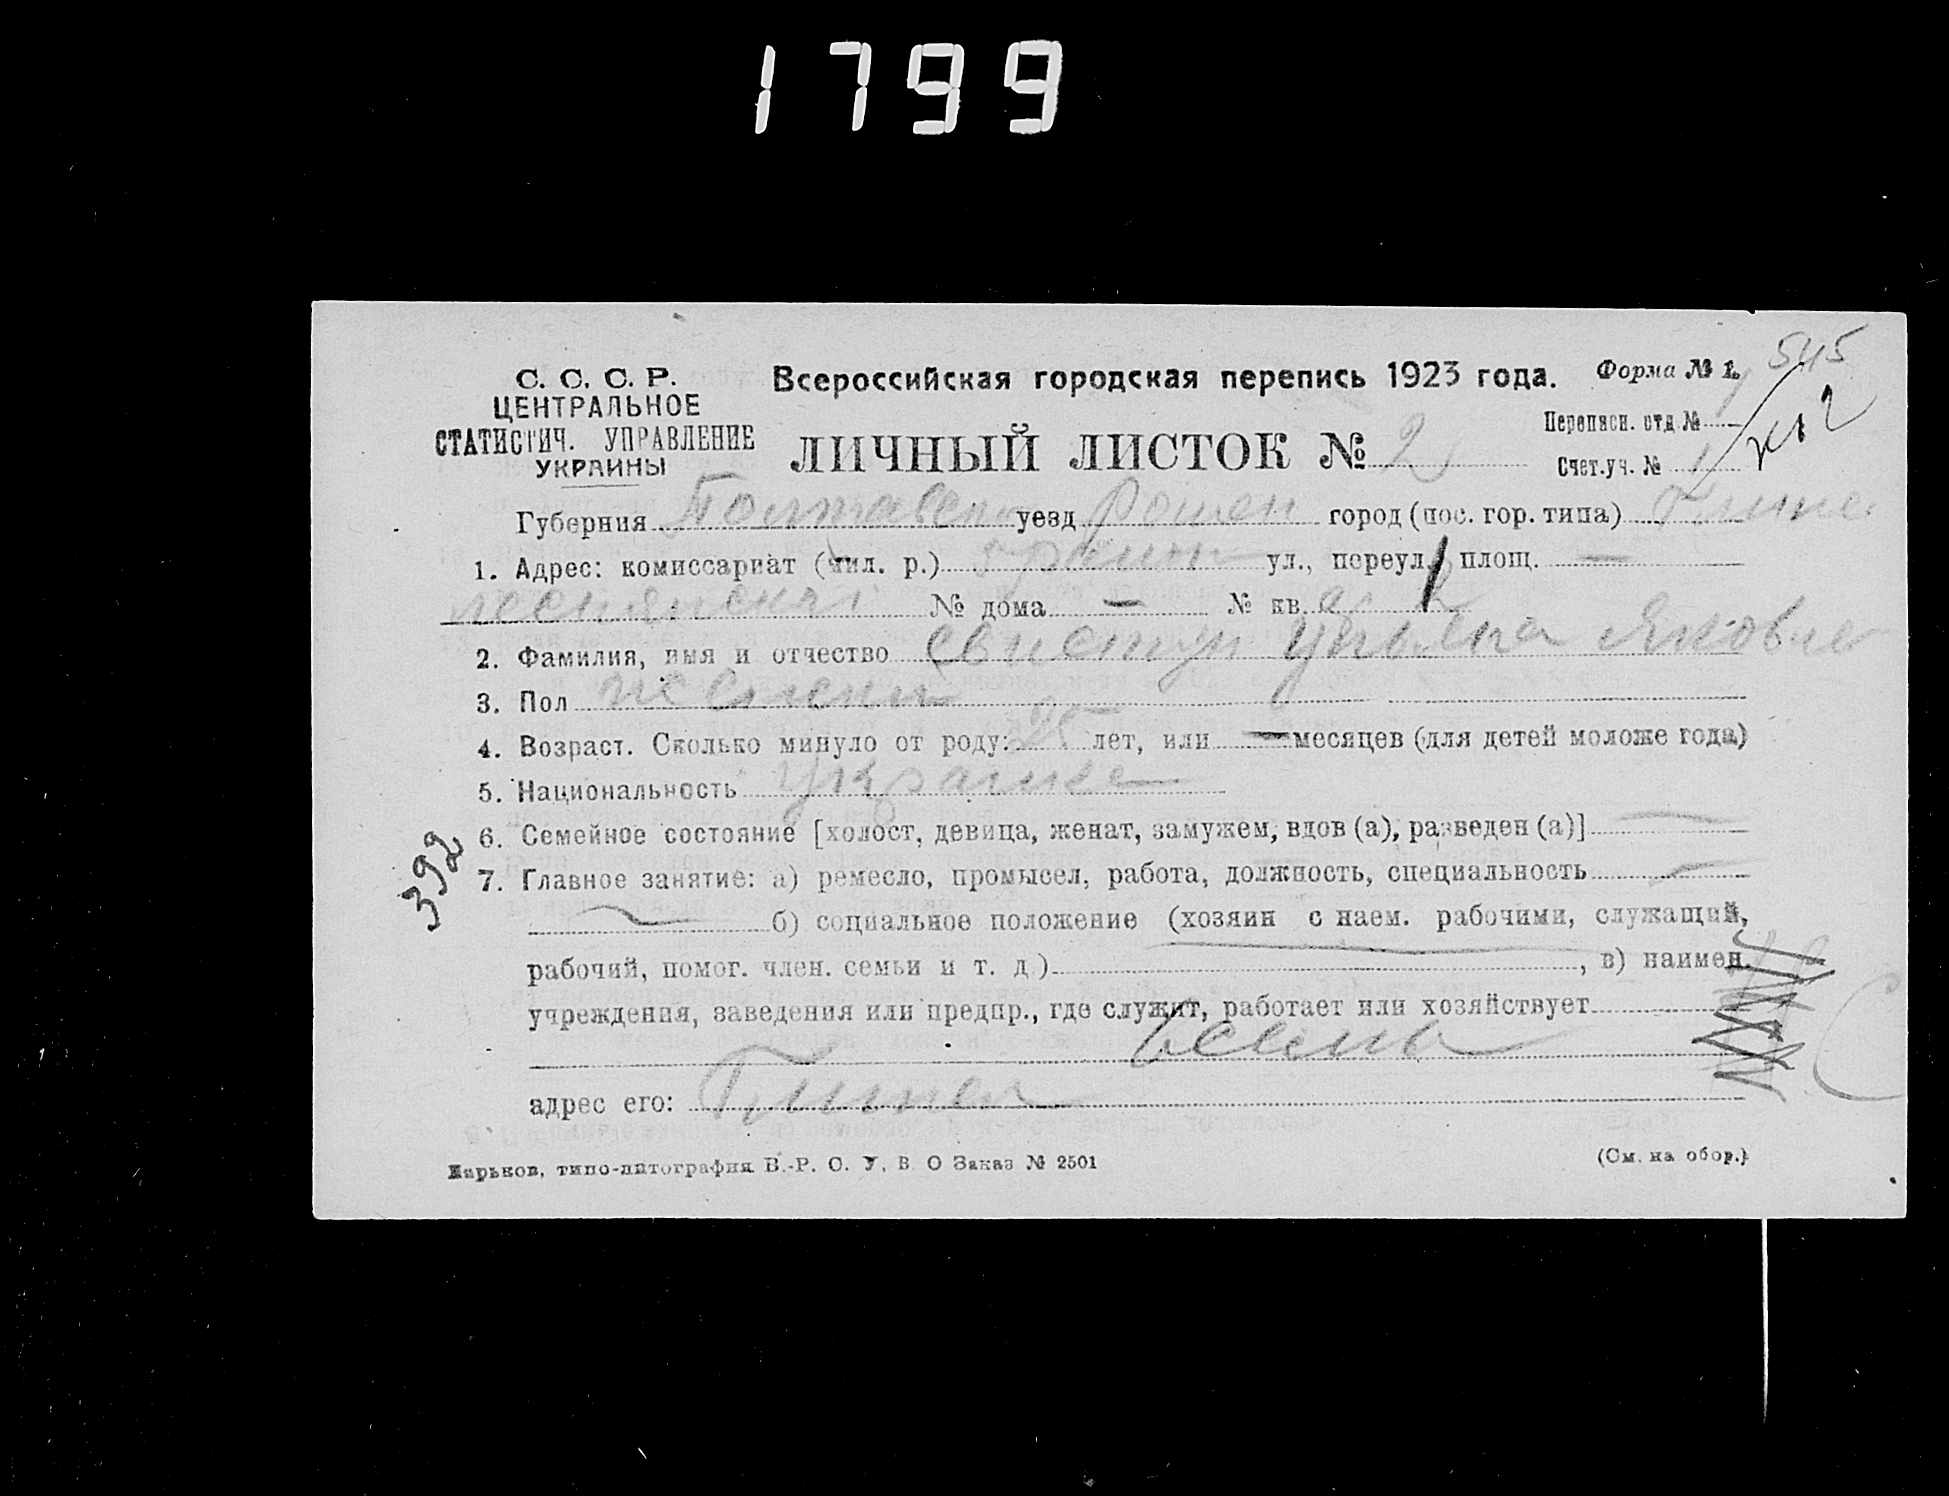 1799
С. С. С. Р.
ЦЕНТРАЛЬНОЕ
СТАТИСТИЧ. УПРАВЛЕНИЕ
УКРАИНЫ
Всероссийская городская перепись 1923 года. Форма № 1.
545
Переписн. отд. №
ЛИЧНЫЙ ЛИСТОК № 2
Счет.уч. № 1
Губерния Полтавск уезд Ромен город (пос. гор. типа) Глинс
1. Адрес: комиссариат (мил. р.) ул., переул., площ. —
№ дома — № кв.
2. Фамилия, имя и отчество Свистун Ульяна Яковле
3. Пол женский
4. Возраст. Сколько минуло от роду: 25 лет, или — месяцев (для детей моложе года)
5. Национальность Украинка
6. Семейное состояние [холост, девица, женат, замужем, вдов (а), разведен (а)] —
392
7. Главное занятие: а) ремесло, промысел, работа, должность, специальность —
— б) социальное положение (хозяин с наем. рабочими, служащий,
рабочий, помог. член. семьи и т. д.) , в) наимен.
учреждения, заведения или предпр., где служит, работает или хозяйствует
адрес его: Глинск
Харьков, типо-литография В.-Р. О. У. В. О Заказ № 2501
(См. на обор.)